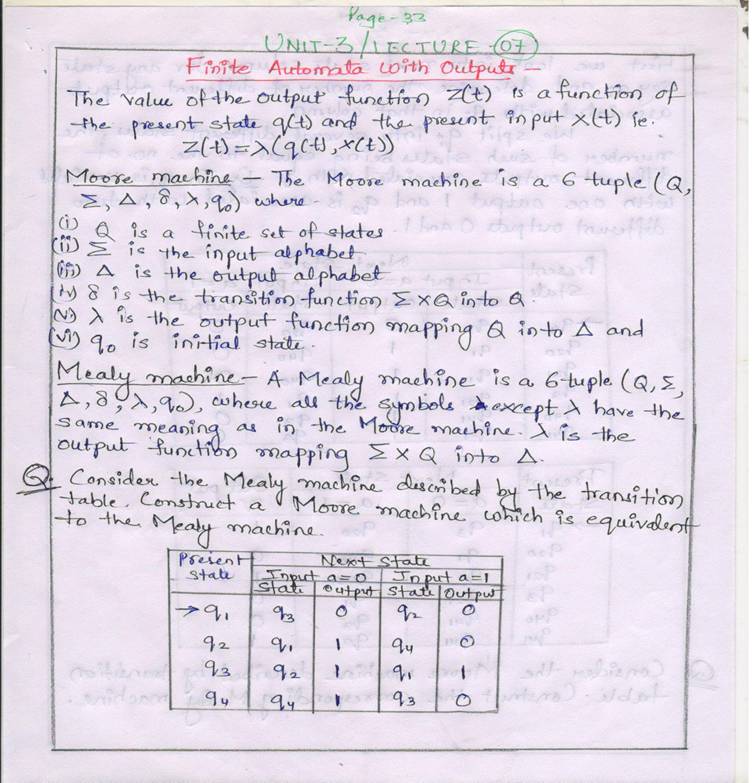 Page-33
UNIT-3/LECTURE-07
Finite Automata with Outputs-
The value of the output function Z(t) is a function of
the present state q(t) and the present input x(t) ie.
Z(t)=λ(q(t),x(t))
Moore machine - The Moore machine is a 6-tuple (Q,
Σ, Δ, δ, λ, q₀) where-
(i) Q is a finite set of states
(ii) Σ is the input alphabet
(iii) Δ is the output alphabet
(iv) δ is the transition function Σ×Q into Q.
(v) λ is the output function mapping Q into Δ and
(vi) q₀ is initial state.
Mealy machine- A Mealy machine is a 6-tuple (Q, Σ,
Δ, δ, λ, q₀), where all the symbols except λ have the
same meaning as in the Moore machine. λ is the
output function mapping Σ×Q into Δ.
Q. Consider the Mealy machine described by the transition
table. Construct a Moore machine which is equivalent
to the Mealy machine.
Present Next State
State Input a=0 Input a=1
State Output State Output
→q₁ q₃ 0 q₂ 0
q₂ q₁ 1 q₄ 0
q₃ q₂ 1 q₁ 1
q₄ q₄ 1 q₃ 0